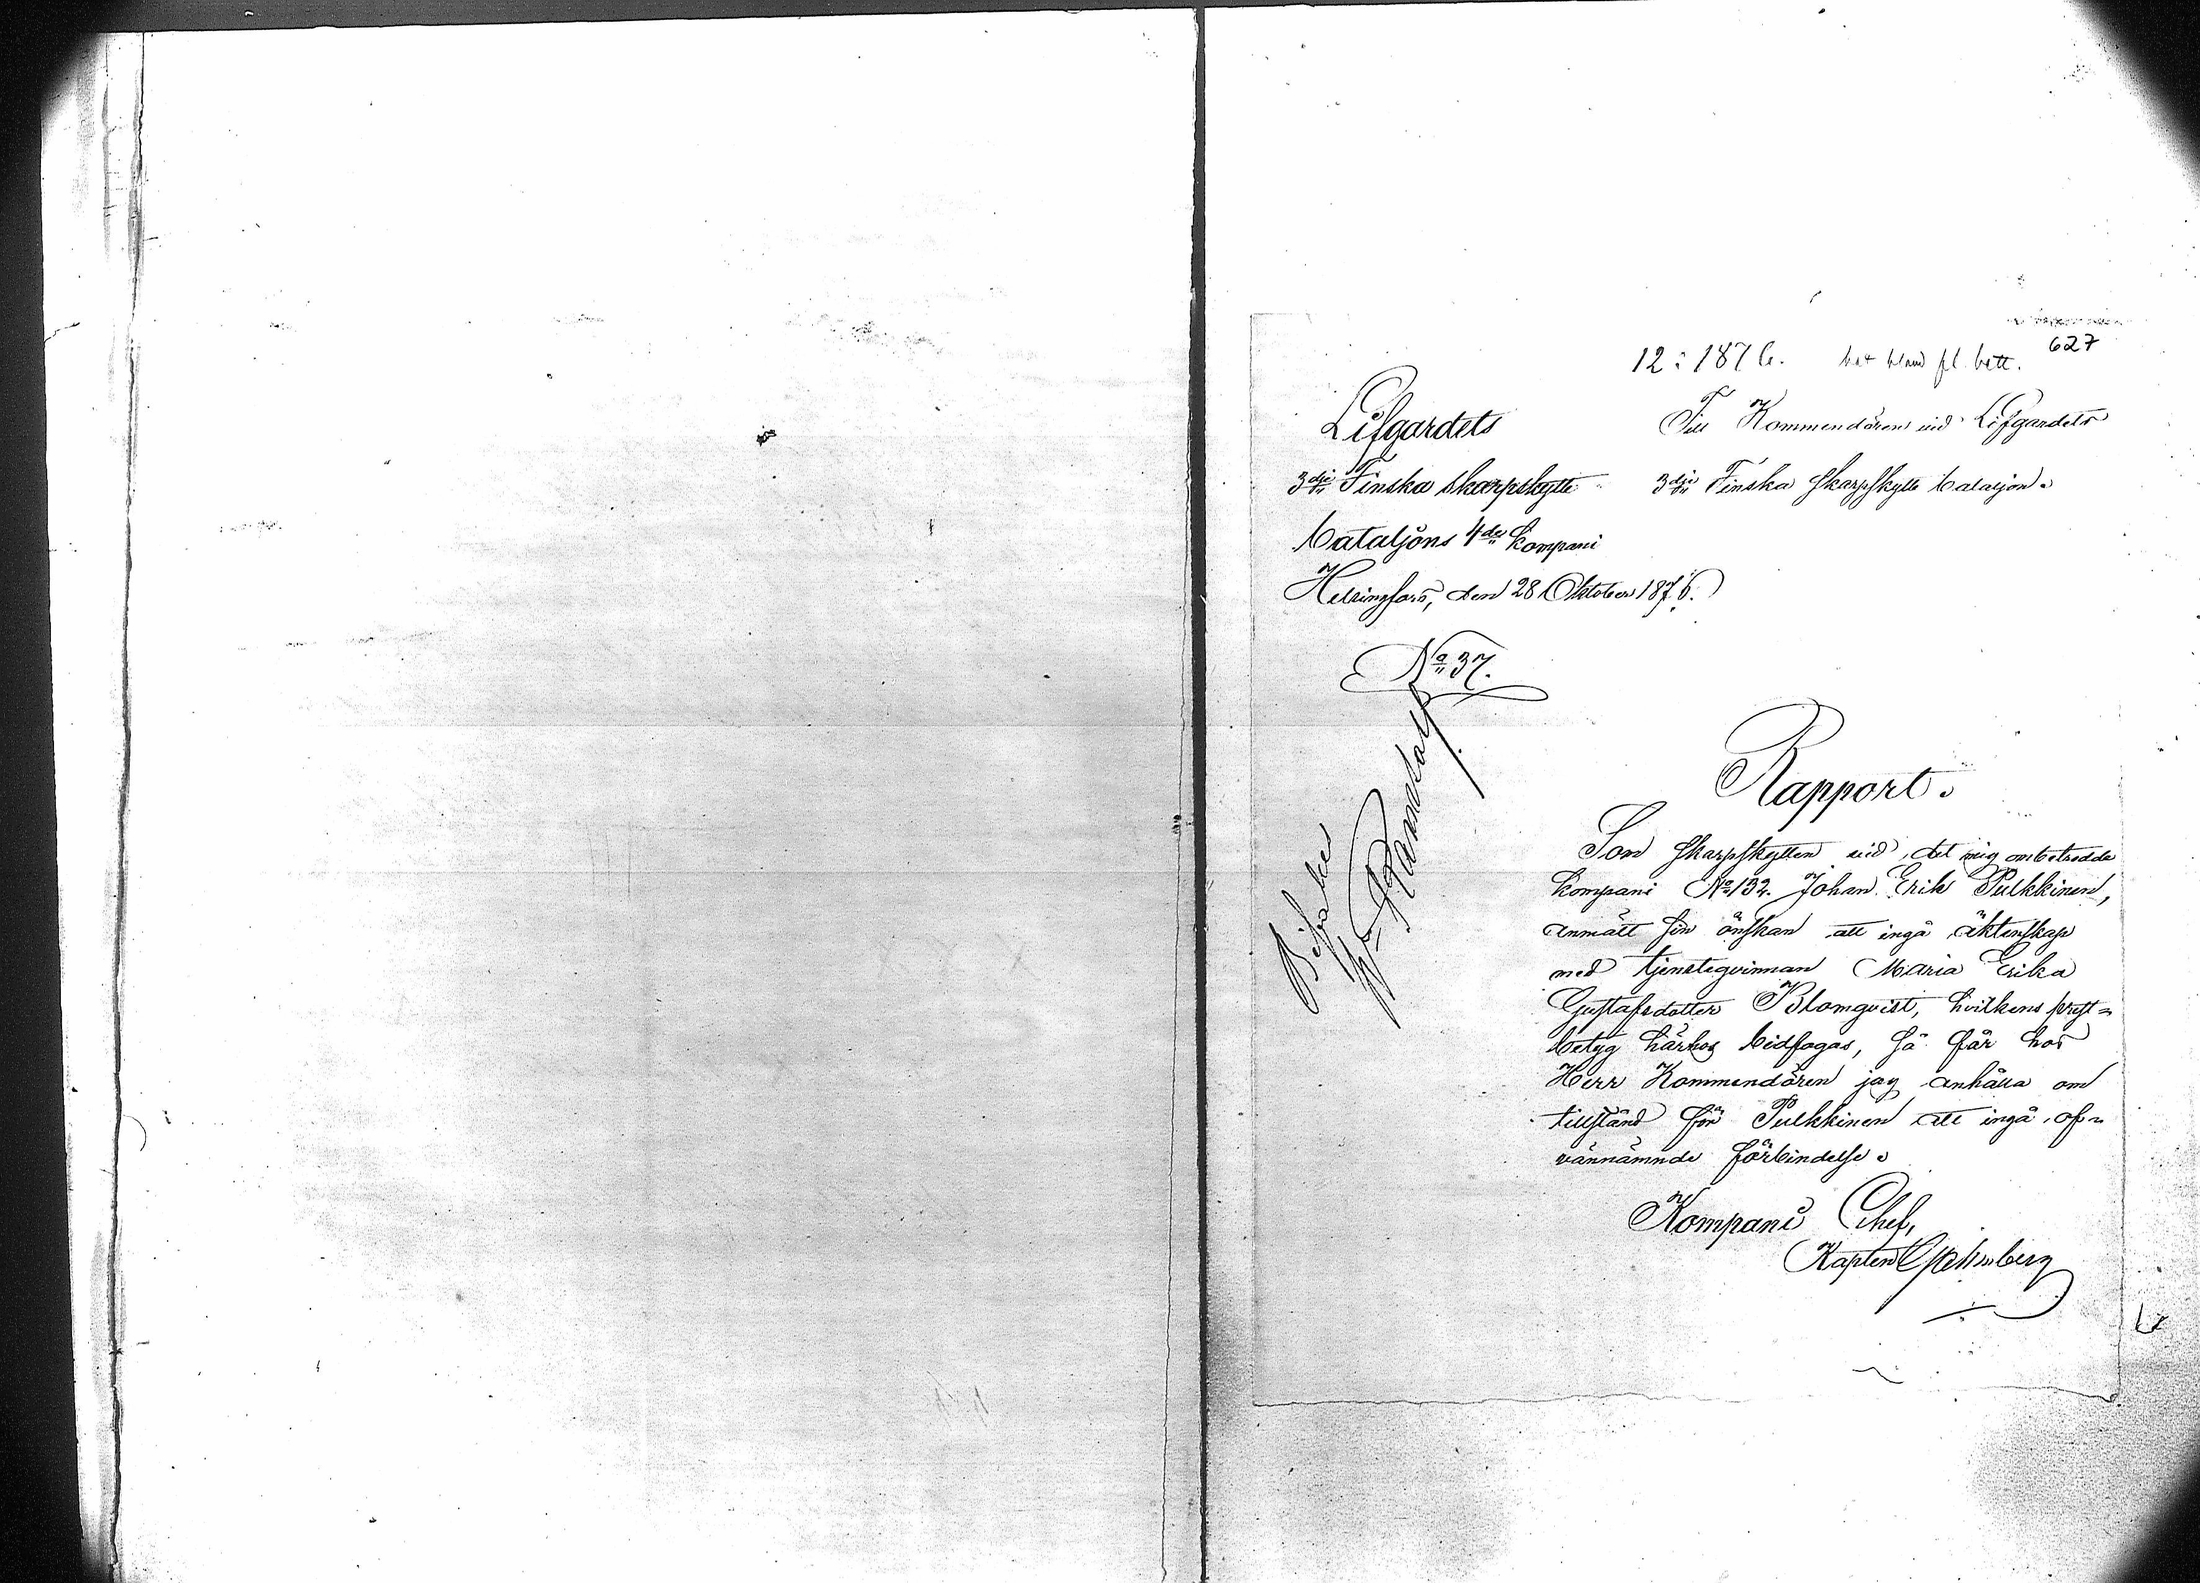 627
12: 1876.
Lifgardets
3dje Finska Skarpskytte
bataljons 4de Kompani
Helsingfors, den 28 Oktober 1876.
No 37.
Till Kommendören vid Lifgardets
3dje Finska Skarpskytte bataljon.
Bifalles
W. Ramsay
Rapport.
Som skarpskytten vid det mig ombetrodda
kompani No 132. Johan Erik Pulkkinen,
anmält sin önskan att ingå äktenskap
med tjensteqvinnan Maria Erika
Gustafsdotter Blomqvist, hvilkens prest-
betyg härhos bidfogas, så får hos
Herr Kommendören jag anhålla om
tillstånd för Pulkkinen att ingå of-
vannämnde förbindelse.
Kompani Chef,
Kapten